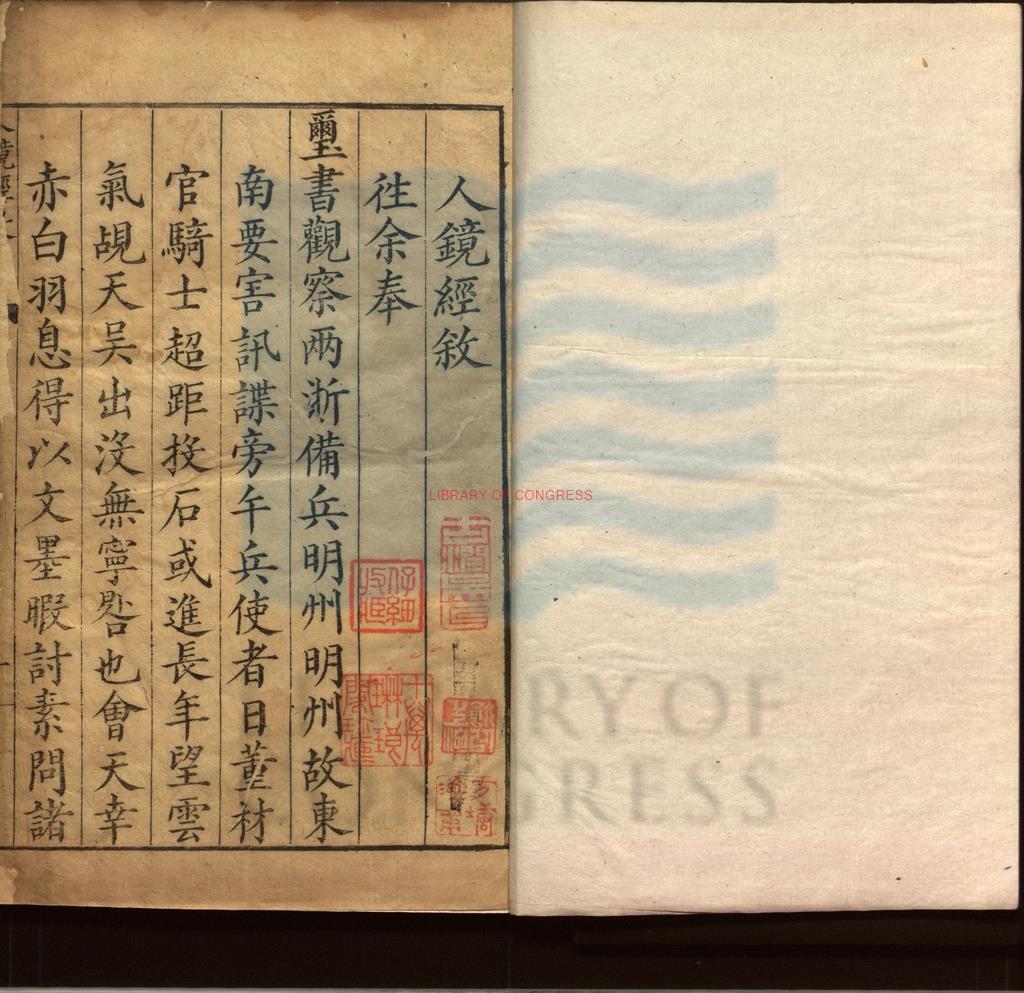 人鏡經敘
徃余奉
璽書觀察兩浙備兵明州明州故東
南要害訊諜旁午兵使者日蓳材
官騎士超距投石或進長年望雲
氣覘天吴出沒無寧晷也會天幸
赤白羽息得以文墨暇討素問諸
LIBRARY OF CONGRESS